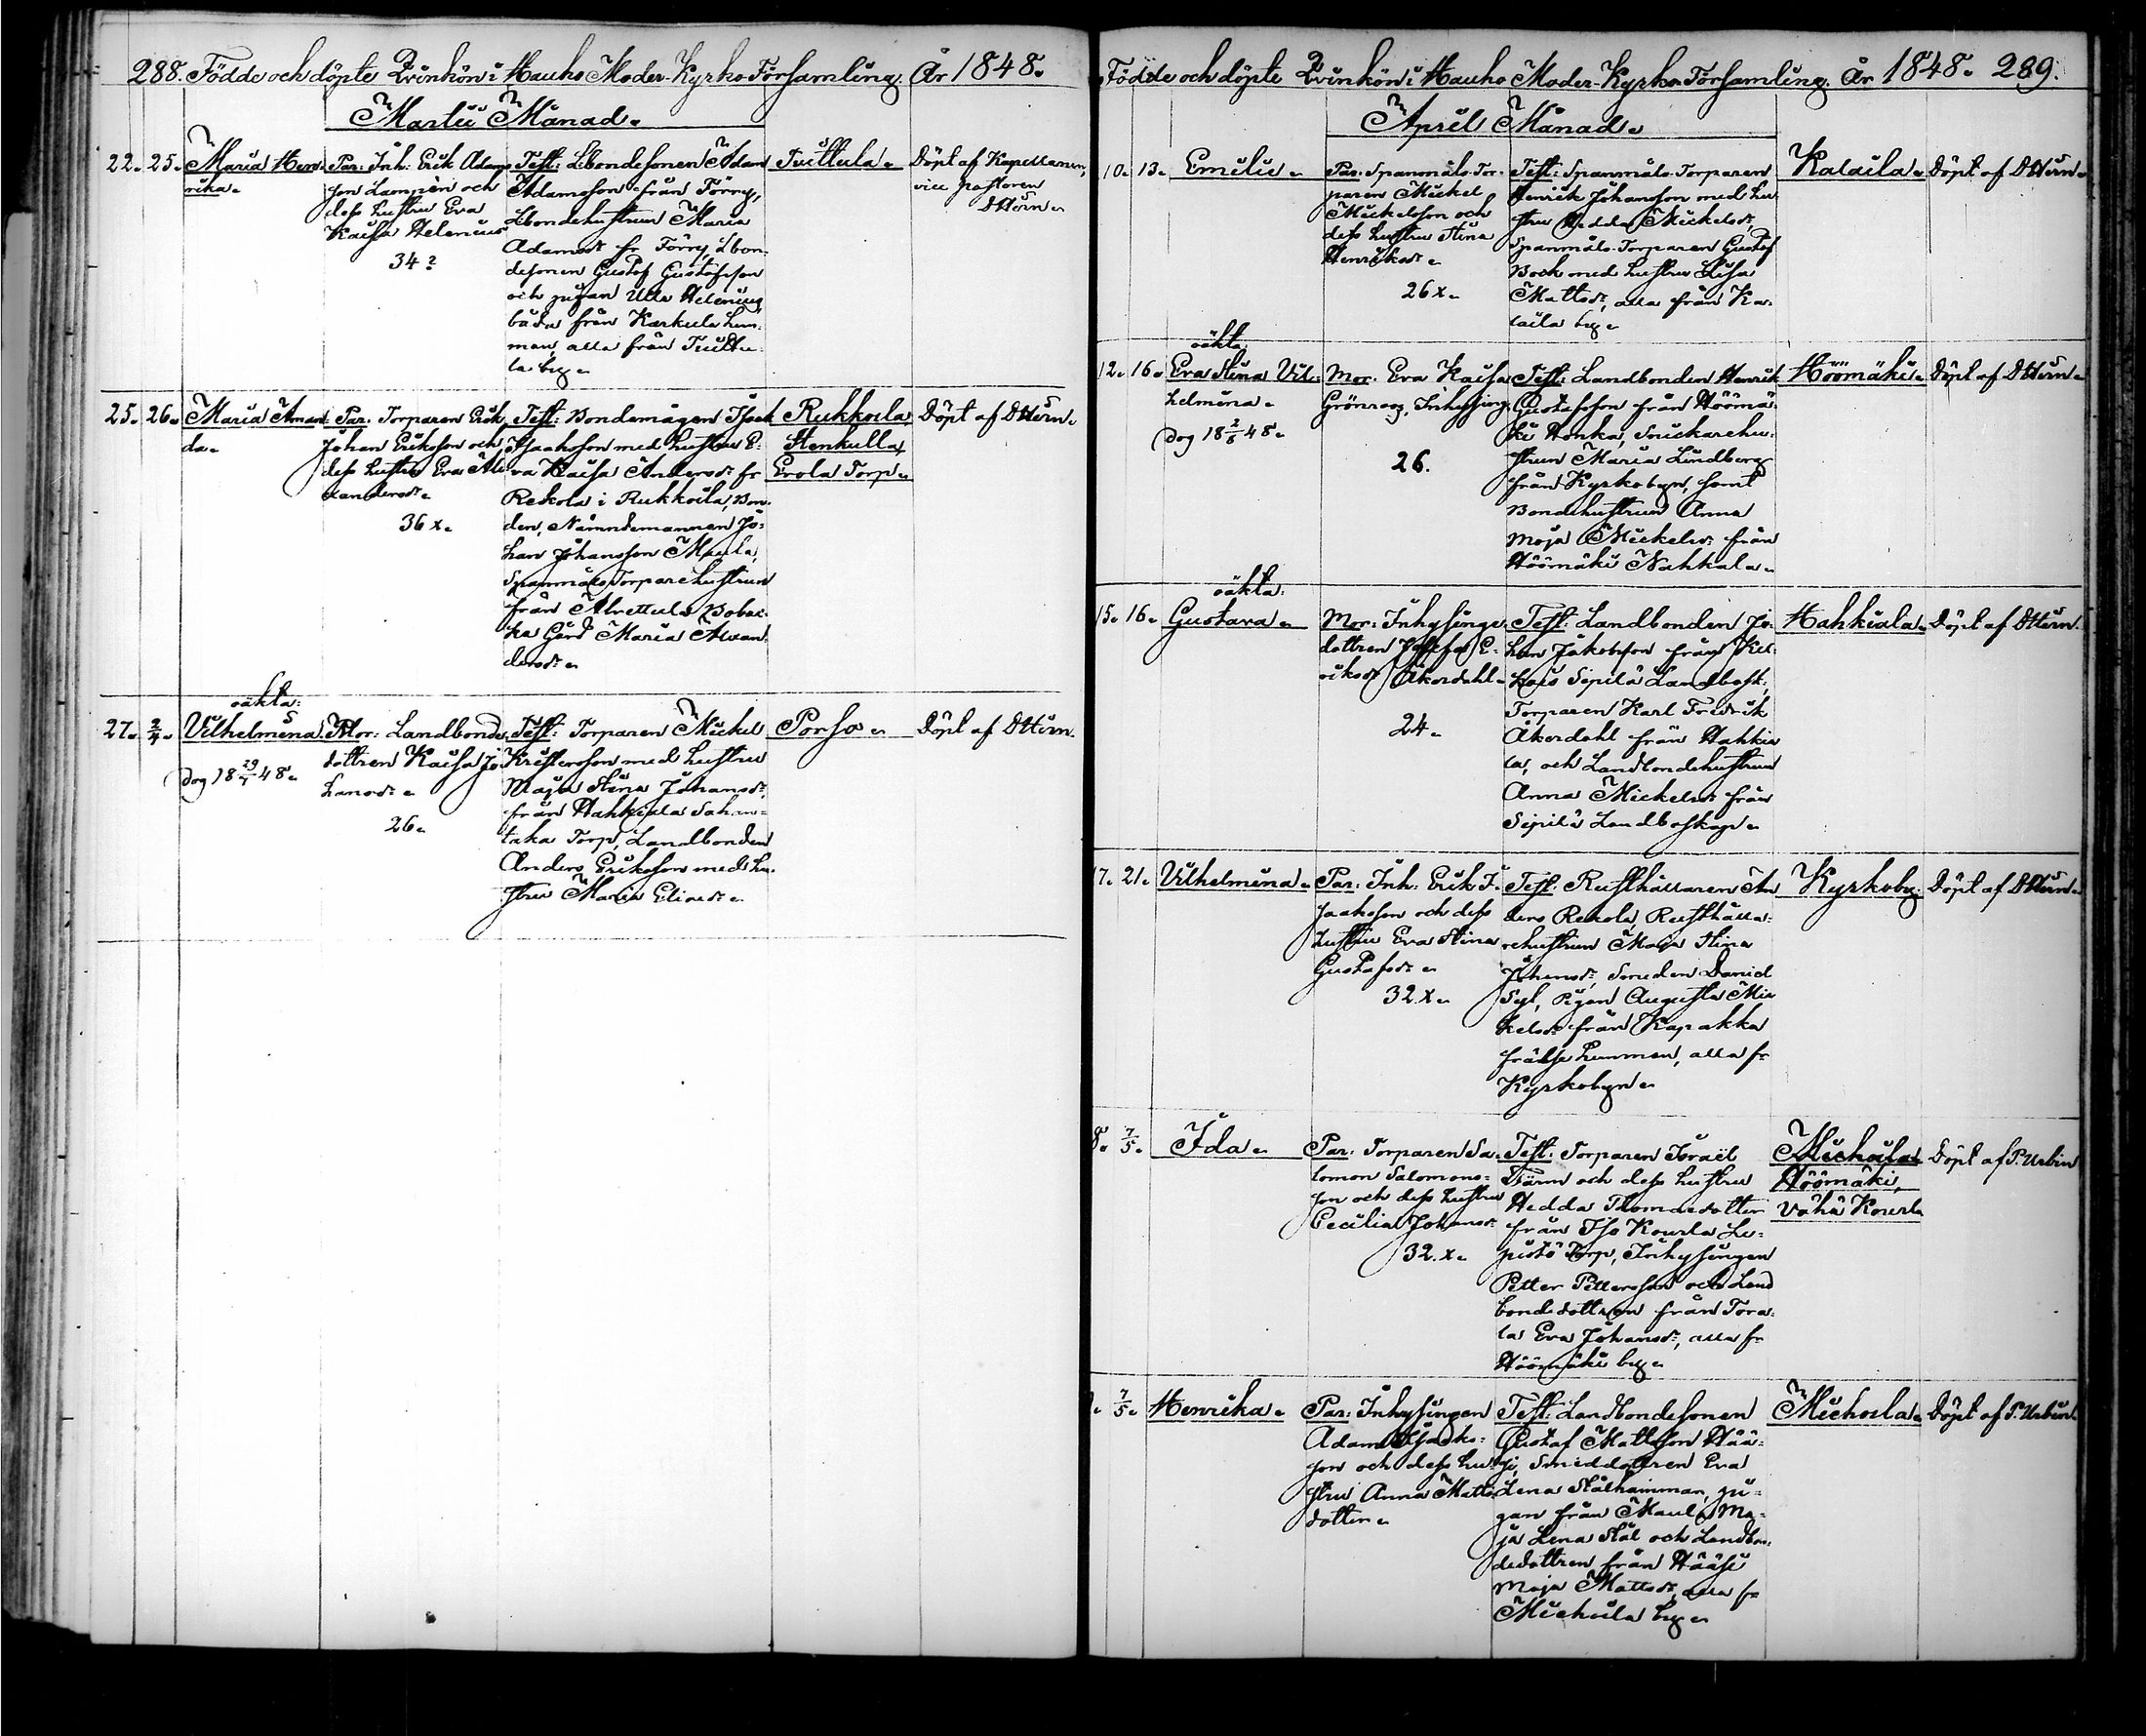 288. Födde och döpte Qvinkön i Hauho Moder-Kyrko-Församling. År 1848.
Martii Månad.
22. 25. Maria Hen-
rika.
Par: Inh: Erik Adams
son Lampèn och
dess hustru Eva
Kaisa Helenius
34?
Test: Lbondesonen Adam
Adamsson från Törry,
Lbondehustrun Maria
Adamsdr fr Törry, Lbon-
desonen Gustaf Gustafsson
och pigan Ulla Helenius
båda från Karkula hem-
man, alla från Tuittu-
la by.
Tuittula.
Döpt af Kapellanen,
vice pastoren
Dttirn.
25. 26. Maria Aman-
da.
Par: Torparen Erik
Johan Eriksson och
dess hustru Eva Ale-
xandersdr.
36 x.
Test: Bondemågen Isak
Isaaksson med hustru E-
va Kaisa Andersdr fr
Rekola i Rukkoila, Bon-
den, Nämndemannen Jo-
han Johansson Maula,
Spanmåls Torparehustrun
från Alvettula Bobac-
ka Gård Maria Alexan-
dersdr.
Rukkoila,
Stenkulla,
Erola Torp.
Döpt af Dttirn.
oäkta:
27. 2/4. Vilhelmina.
Dog 18 29/4 48.
Mor: Landbonde
dottren Kaisa Jo-
hansdr.
26.
Test: Torparen Mickel
Kristersson med hustru
Maja Stina Johansdr,
från Hahkiala Sahan-
taka Torp, Landbonden
Anders Eriksson med hu-
stru Maria Eliasdr.
Porso.
Döpt af Dttirn.
Födde och döpte Qvinkön i Hauho Moder-Kyrko-Församling. År 1848. 289.
April Månad.
10. 13. Emilie.
Par: Spanmåls-Tor-
paren Mickel
Mickelsson och
dess hustru Stina
Henriksdr.
26 x.
Test: Spanmåls-Torparen
Henrik Johansson med hu-
stru Hedda Mickelsdr,
Spanmåls-Torparen Gustaf
Bock med hustru Lisa
Mattsdr, alla från Ka-
laila by.
Kalaila.
Döpt af Dttirn.
oäkta:
12. 16. Eva Stina Vil-
helmina.
Dog 18 2/8 48.
Mor: Eva Kaisa
Grönroos, Inhysing.
26.
Test: Landbonden Henrik
Gustafsson från Höömä-
ki Honka, Snickarehu-
strun Maria Lindberg
från Kyrkobyn, samt
Bondehustrun Anna
Maja Mickelsdr från
Höömäki Nahkala.
Höömäki.
Döpt af Dttirn.
oäkta:
15. 16. Gustava.
Mor: Inhysinge
dottren Josefa E-
riksdr Åkerdahl.
24.
Test: Landbonden Jo-
han Jakobsson från
Sipilä Landbosk:,
Torparen Karl Fredrik
Åkerdahl från Hahkia
la, och Landbondehustrun
Anna Mickelsdr från
Sipilä Landboskap.
Hahkiala.
Döpt af Dttirn.
17. 21. Vilhelmina.
Par: Inh: Erik I-
saaksson och dess
hustru Eva Stina
Gustafsdr.
32 x.
Test: Rusthållaren An
ders Rekola, Rusthålla-
rehustrun Maja Stina
Johansdr, Smeden Daniel
Syl, Pigan Augusta Mic
kelsdr från Kapakka
frälse hemman, alla fr
Kyrkobyn.
Kyrkoby.
Döpt af Dttirn.
8. 7/5. Ida.
Par: Torparen Sa-
lomon Salomons-
son och dess hustru
Cecilia Johansdr
32. x.
Test: Torparen Israel
Törn och dess hustru
Hedda Thomasdotter
från Iso Kourla Le-
pistö Torp, Inhysingen
Petter Pettersson och Land
bondedottren från Tora-
la Eva Johansdr, alla fr
Höömäki by.
Miehoila,
Höömäki,
Vähä Kourla
Döpt af P. Urbin
7/5. Henrika.
Par: Inhysingen
Adam Isaaks-
son och dess hu-
stru Anna Matts
dotter.
Test: Landbondesonen
Gustaf Mattsson Hää-
si, Smeddottren Eva
Lena Stålhammar, pi-
gan från Maula Ma-
ja Lena Stål och Landbon-
dedottren från Hääsi
Maja Mattsdr, alla fr
Miehoila by.
Miehoila.
Döpt af P. Urbin.